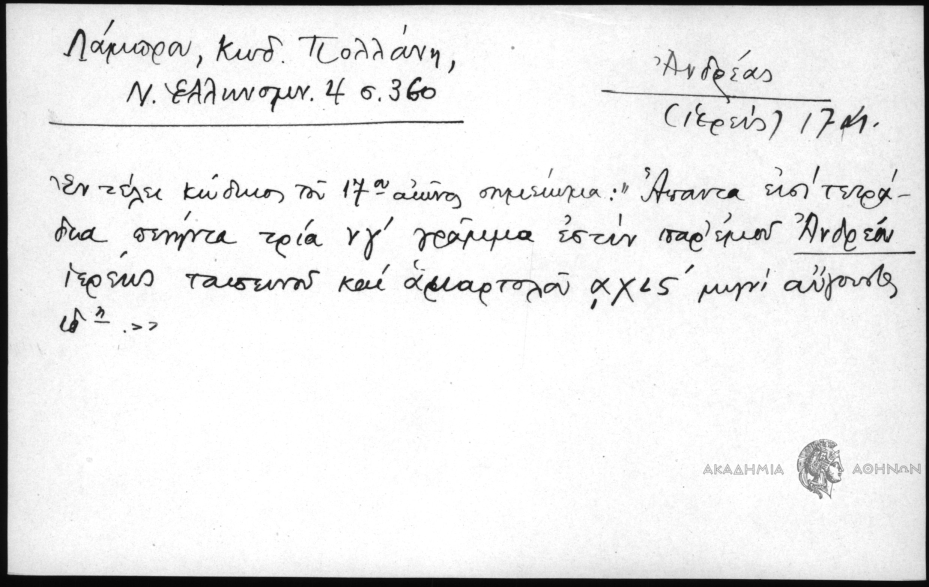 Λάμπρου, Κωδ. Πολλάνη,
Ν. Ἑλληνομν. 4 σ. 360
Ἀνδρέας
(ἱερεύς) 17
Ἐν τέλει κώδικος τοῦ 17ου αἰῶνος σημείωμα: "Ἅπαντα εἰσί τετρά-
δια πενήντα τρία νγ' γράμμα ἐστίν παρ' ἐμοῦ Ἀνδρέου
ἱερέως ταπεινοῦ καί ἁμαρτολοῦ ͵αχις μηνί αὐγούστῳ
ιδῃ .>>
ΑΚΑΔΗΜΙΑ ΑΘΗΝΩΝ